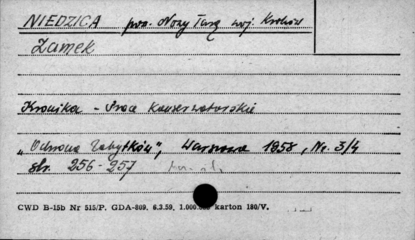 NIEDZICA pow. Nowy Targ woj. Kraków
Zamek
Kronika - Prace Konserwatorskie
„Ochrona Zabytków”, Warszawa 1958, Nr. 3/4
str. 256-257
CWD B-15b Nr 515/P. GDA-809. 6.2.59. 1.000.000 karton 180/V.